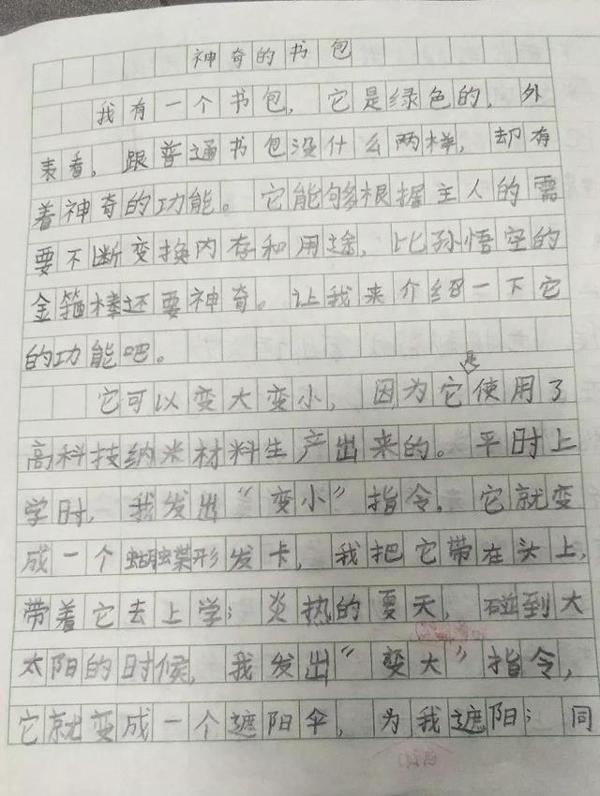 神奇的书包
我有一个书包，它是绿色的，外
表看，跟普通书包没什么两样，却有
着神奇的功能。它能够根据主人的需
要不断变换内存和用途，比孙悟空的
金箍棒还要神奇。让我来介绍一下它
的功能吧。
它可以变大变小，因为它是使用了
高科技纳米材料生产出来的。平时上
学时，我发出“变小”指令。它就变
成一个蝴蝶形发卡，我把它带在头上，
带着它去上学；炎热的夏天，碰到大
太阳的时候，我发出“变大”指令，
它就变成一个遮阳伞，为我遮阳；同